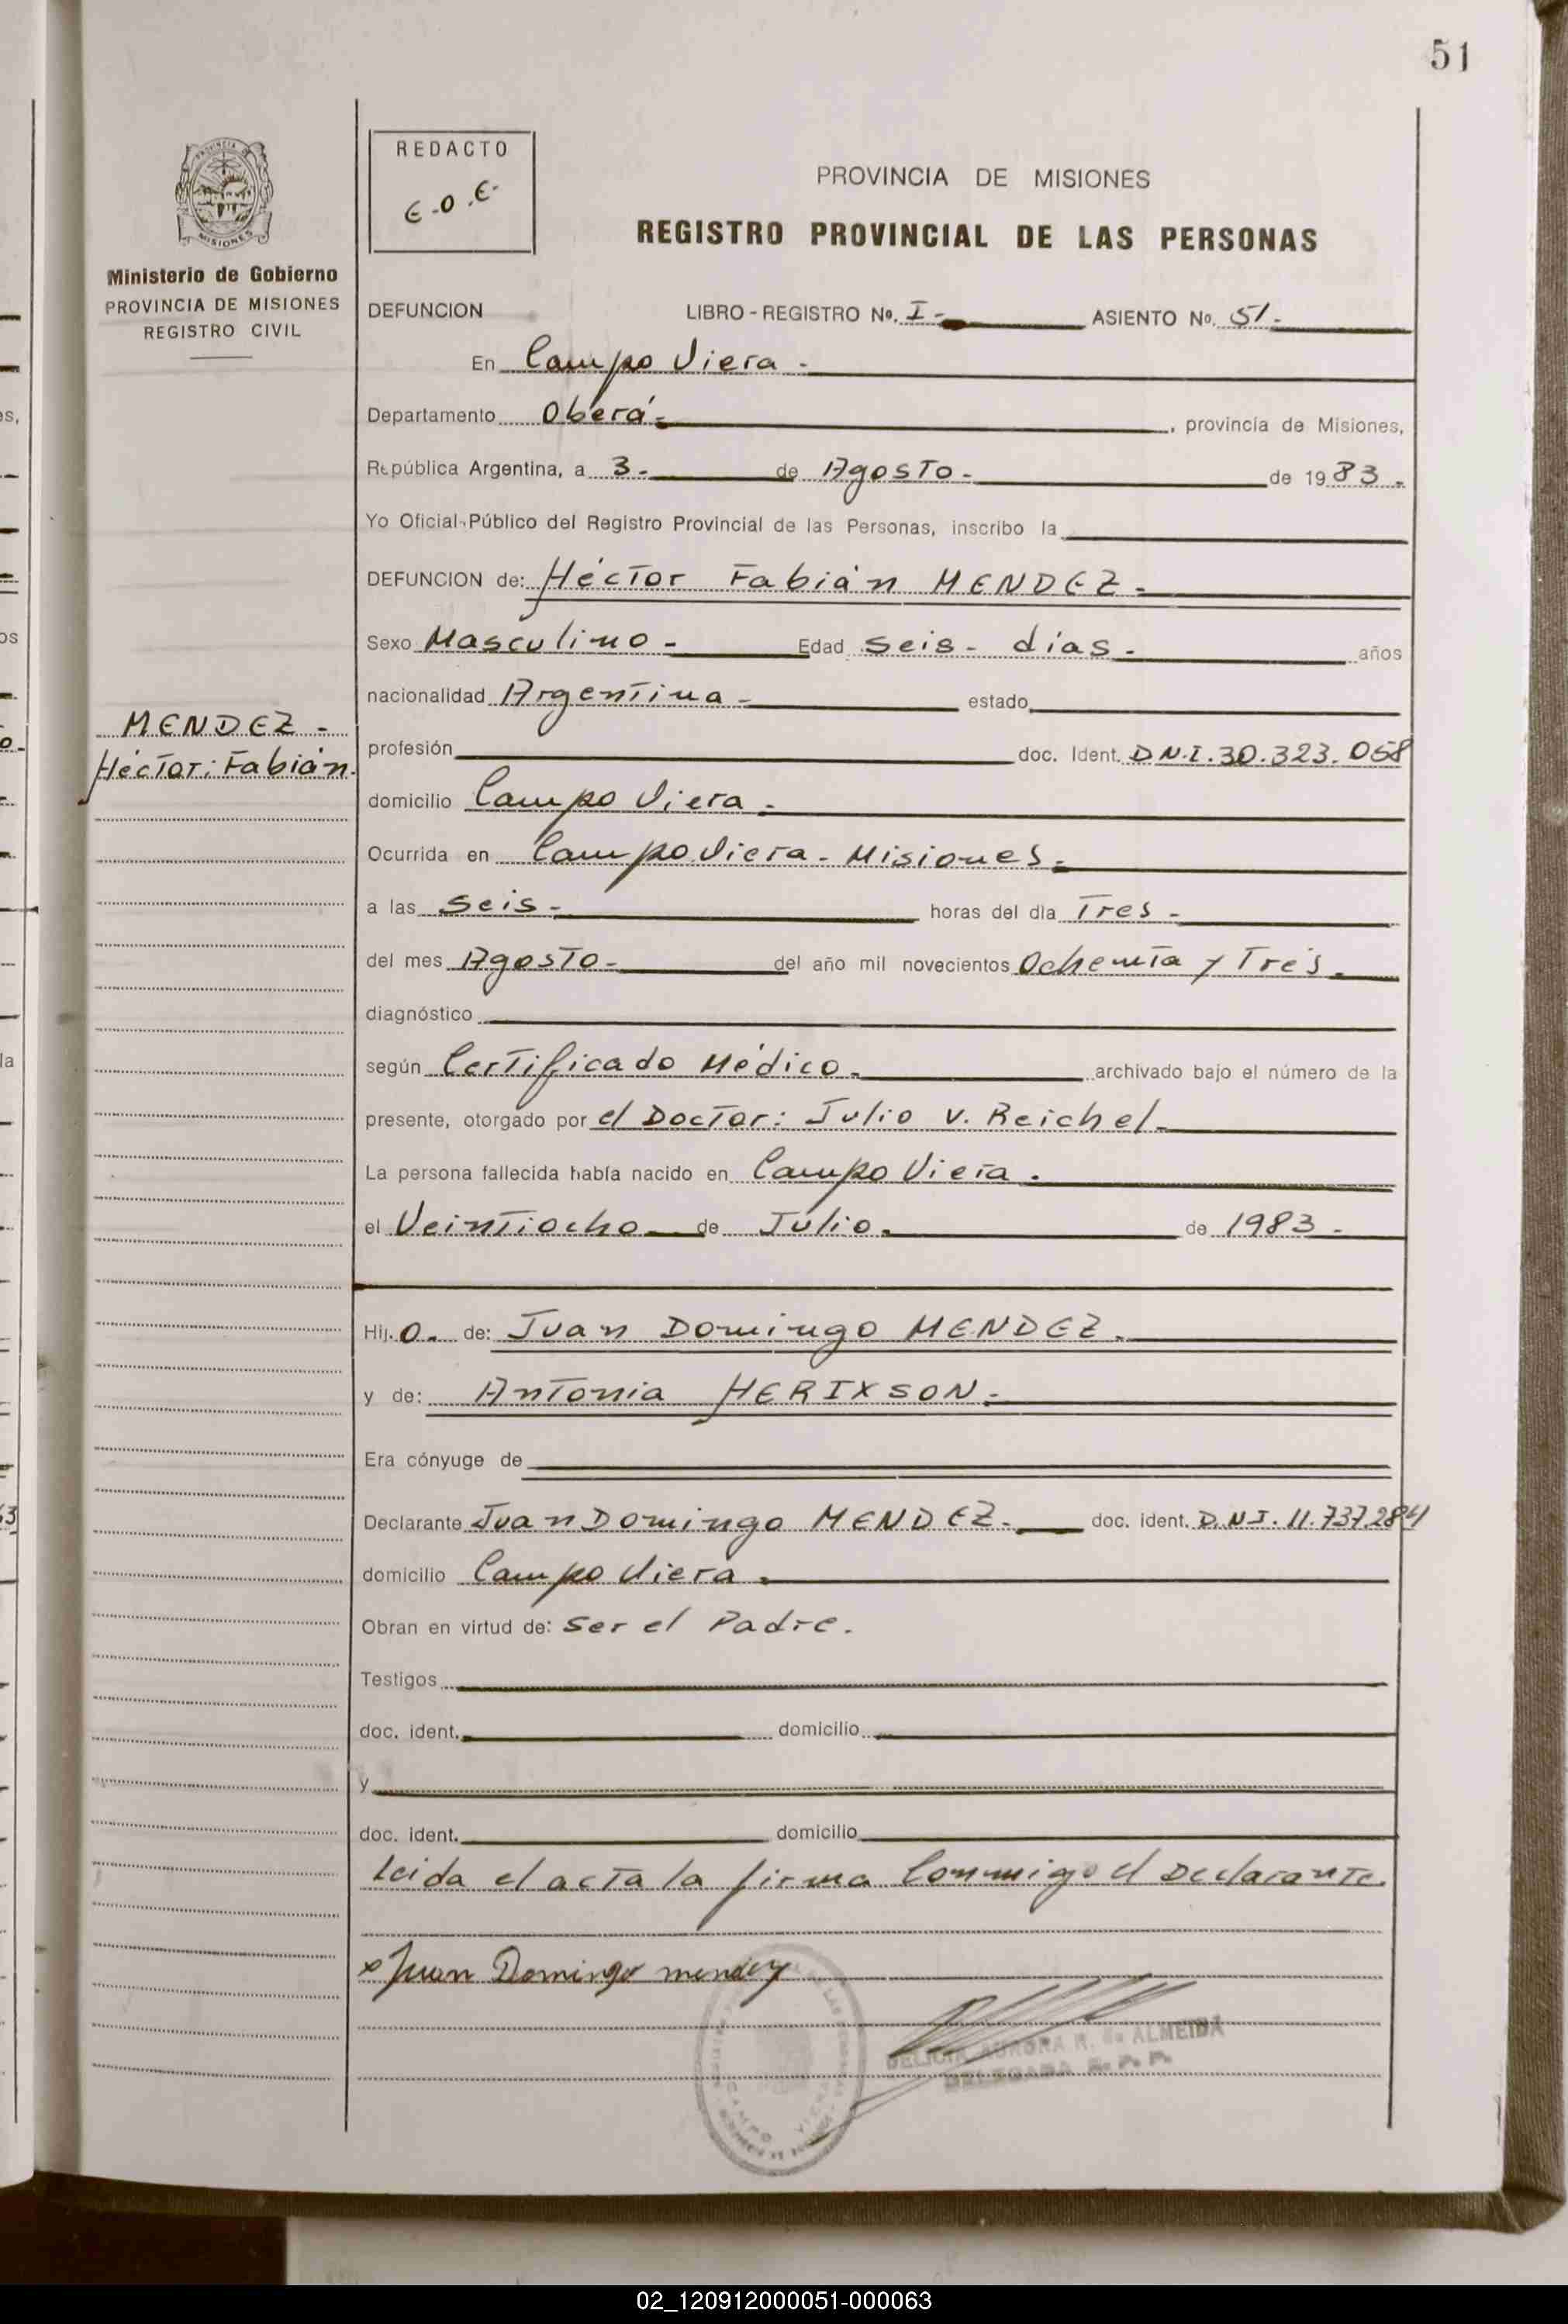 51
PROVINCIA DE
MISIONES
Ministerio de Gobierno
PROVINCIA DE MISIONES
REGISTRO CIVIL
REDACTO
E.O.E.
PROVINCIA DE MISIONES
REGISTRO PROVINCIAL DE LAS PERSONAS
DEFUNCION LIBRO - REGISTRO No. I- ASIENTO No. 51.
En Campo Viera.
Departamento Oberá. , provincia de Misiones,
República Argentina, a 3. de Agosto. de 1983.
Yo Oficial Público del Registro Provincial de las Personas, inscribo la
DEFUNCION de: Héctor Fabián MENDEZ.
Sexo Masculino- Edad seis- días. años
nacionalidad Argentina- estado
MENDEZ-
Héctor: Fabián.
profesión doc. Ident. D.N.I. 30.323.058
domicilio Campo Viera.
Ocurrida en Campo Viera - Misiones.
a las seis- horas del día Tres-
del mes Agosto- del año mil novecientos Ochenta y Tres.
diagnóstico
según Certificado Médico. archivado bajo el número de la
presente, otorgado por el Doctor: Julio V. Reichel.
La persona fallecida había nacido en Campo Viera.
el Veintiocho de Julio. de 1983-
Hij o. de: Juan Domingo MENDEZ.
y de: Antonia HERIXSON.
Era cónyuge de
Declarante Juan Domingo MENDEZ. doc. ident. D.N.I. 11.737.284
domicilio Campo Viera.
Obran en virtud de: ser el Padre.
Testigos
doc. ident. domicilio
y
doc. ident. domicilio
leida el acta la firma Conmigo el Declarante.
x Juan Domingo mendez
DELICIA AURORA R. de ALMEIDA
DELEGADA R. P. P.
CAMPO VIERA
02_120912000051-000063